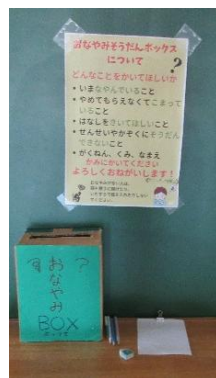 おなやみそうだんボックス
について
?
どんなことをかいてほしいか
・いまなやんでいること
・やめてもらえなくてこまって
いること
・はなしをきいてほしいこと
・せんせいやかぞくにそうだん
できないこと
・がくねん、くみ、なまえ
かみにかいてください
よろしくおねがいします!
おなやみ
?
BOX